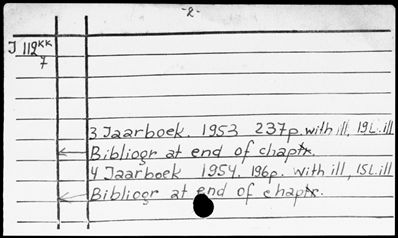 -2-
J 112KK
7
3 Jaarboek. 1953 237p. with ill, 19 L. ill
Bibliogr at end of chaptr.
4 Jaarboek 1954. 196p. with ill, 15 L. ill
Bibliogr at end of chaptr.